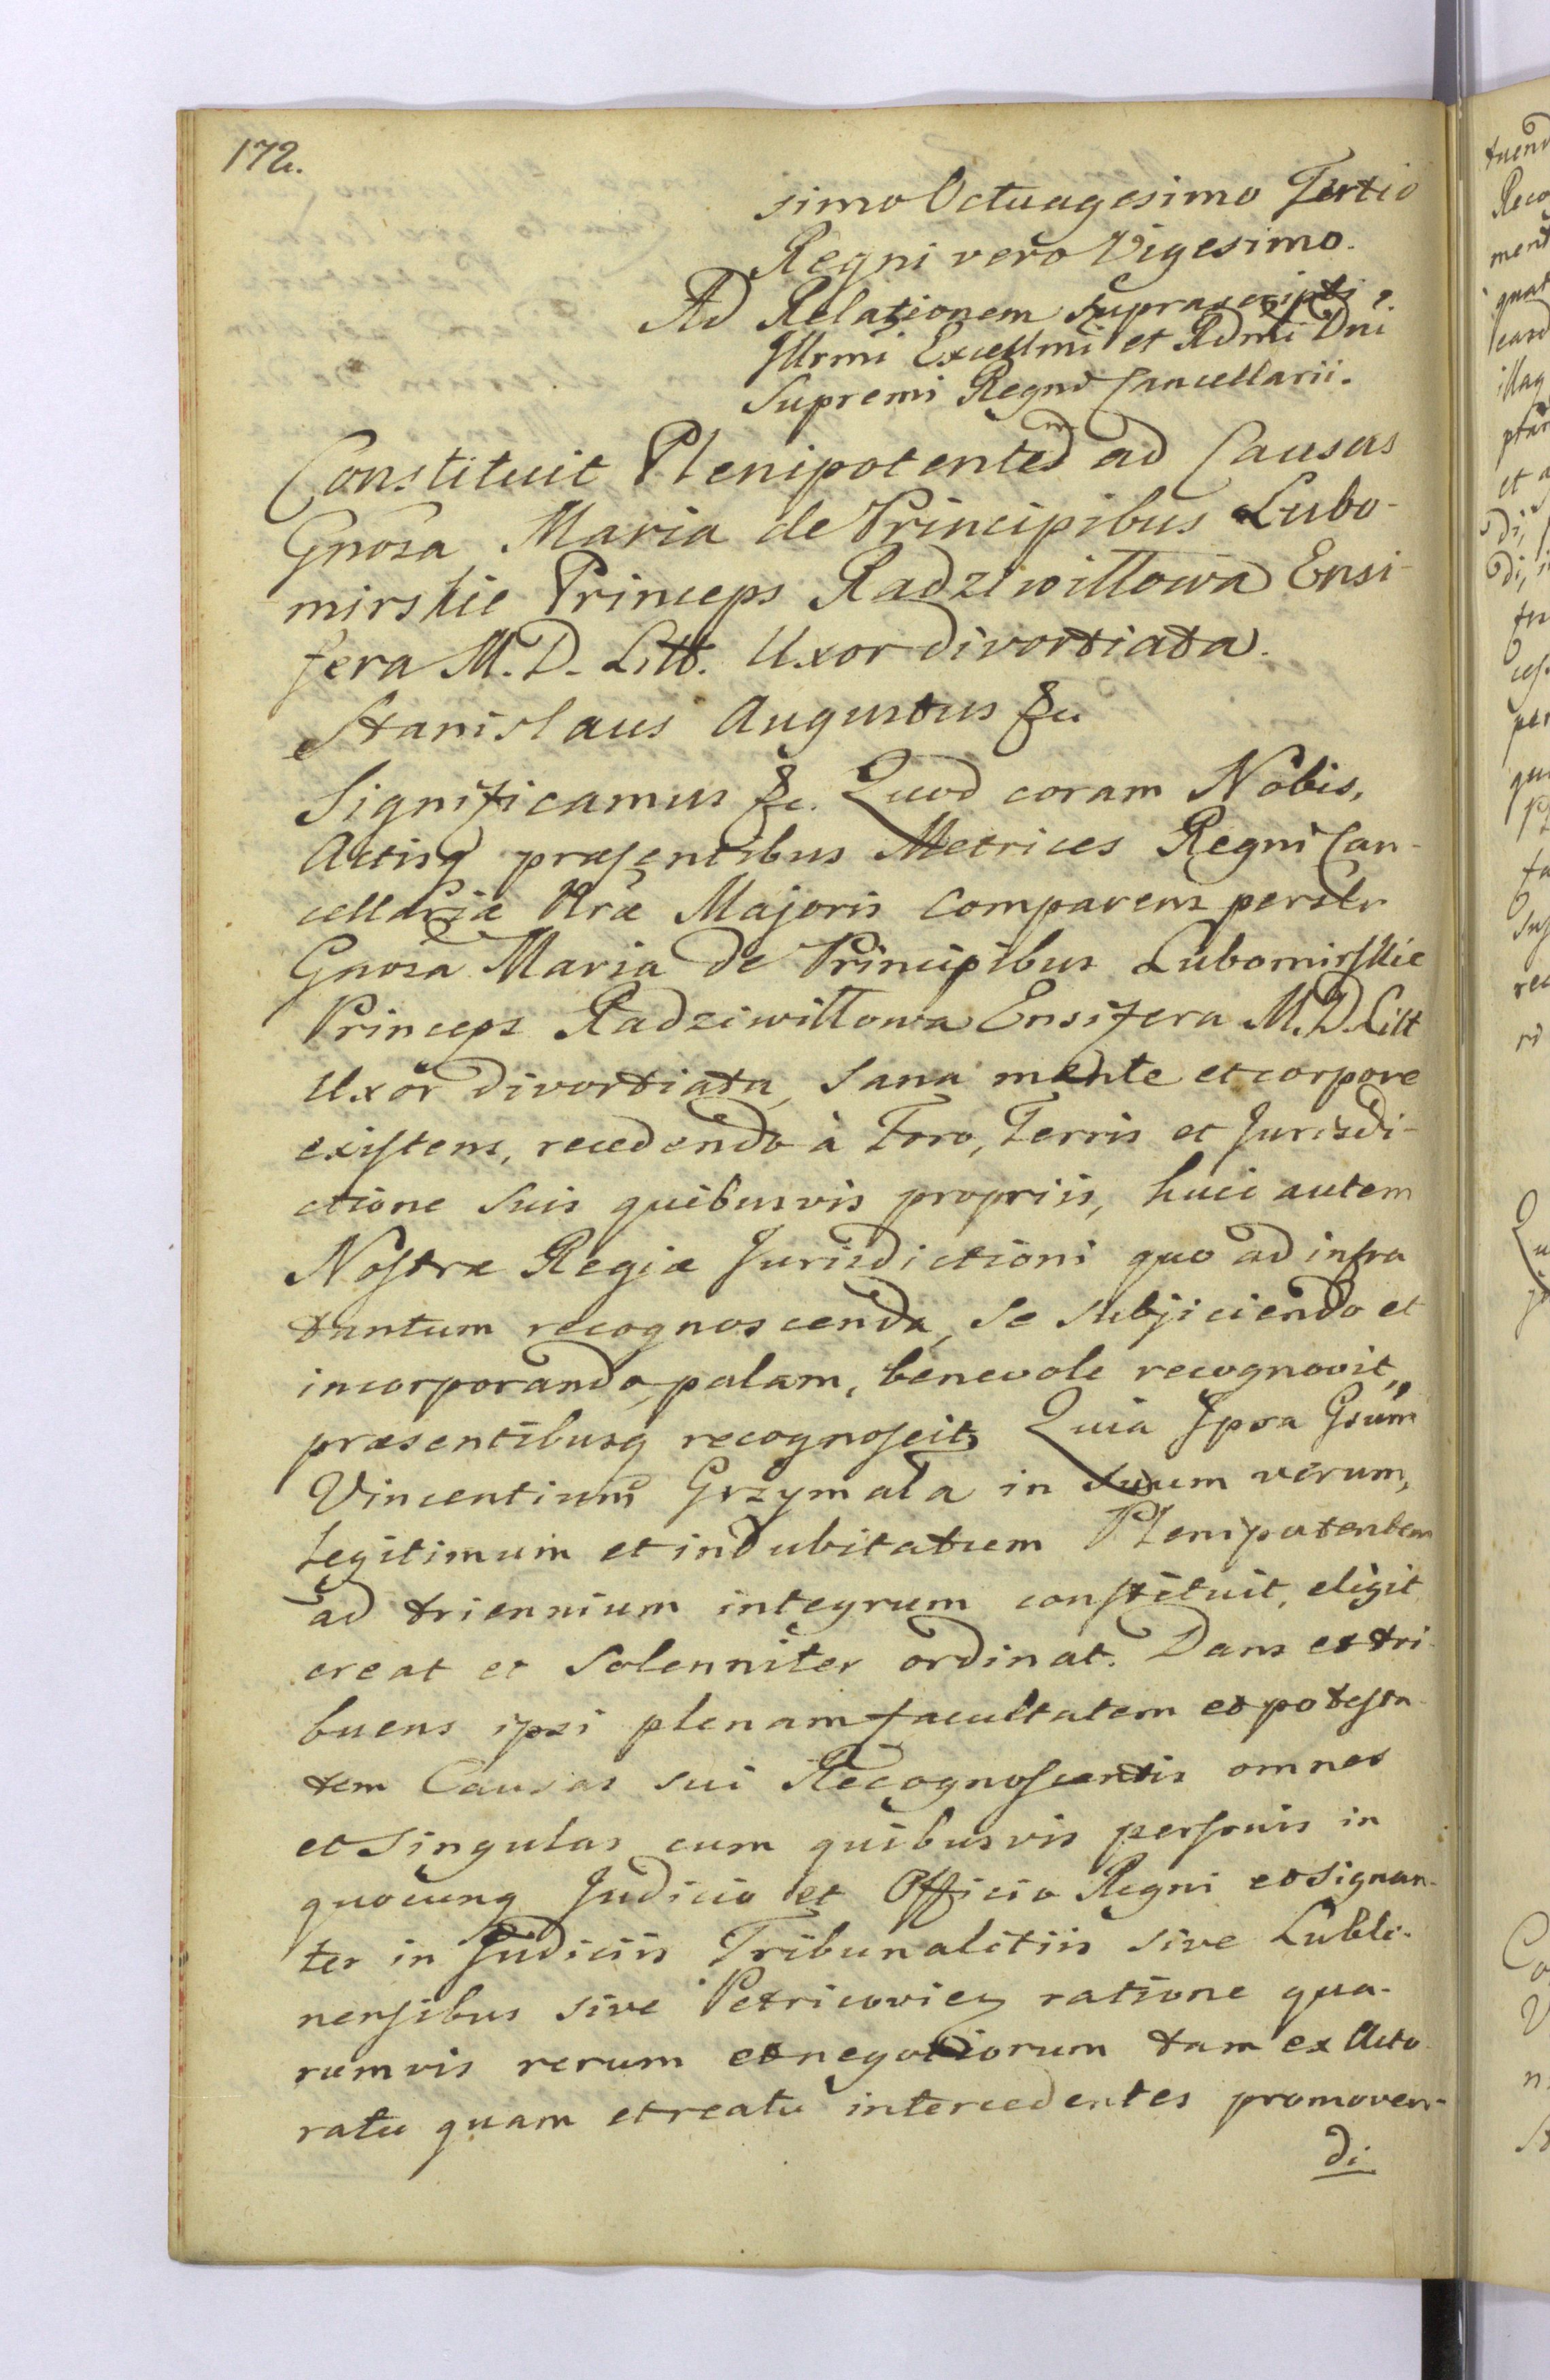 172.
simo Octuagesimo Tertio
Regni vero Vigesimo.
Ad Relationem suprascripti
Illrmi Excellmi et Rdmi Dni
Supremi Regni Cancellarii.
Constituit Plenipotentem ad Causas
Gnosa Maria de Principibus Lubo-
mirskie Princeps Radziwiłłowa Ensi-
fera M. D. Litt. Uxor divortiata.
Stanislaus Augustus &c
Significamus &c. Quod coram Nobis,
Actisq præsentibus Metrices Regni Can-
cellariæ Nræ Majoris comparens persltr
Gnosa Maria de Principibus Lubomirskie
Princeps Radziwiłłowa Ensifera M. D. Litt
Uxor divortiata, sana mente et corpore
existens, recedendo à Foro, Terris et Jurisdi-
ctione suis quibusvis propriis, huic autem
Nostræ Regiæ Jurisdictioni quo ad infra
tantum recognoscenda, se subjiciendo et
incorporando, palam, benevole recognovit,
præsentibusq recognoscit, Quia Ipsa Gsum
Vincentium Grzymała in suum verum,
legitimum et indubitatum Plenipotentem
ad triennium integrum constituit, eligit
creat et solenniter ordinat. Dans et tri-
buens ipsi plenam facultatem et potesta-
tem Causas sui Recognoscentis omnes
et singulas cum quibusvis personis in
quocunq Judicio et Officio Regni et signan-
ter in Judiciis Tribunalitiis sive Lubli-
nensibus sive Petricovien ratione qua-
rumvis rerum et negotiorum tam ex Acto-
ratu quam et reatu intercedentes promoven-
di